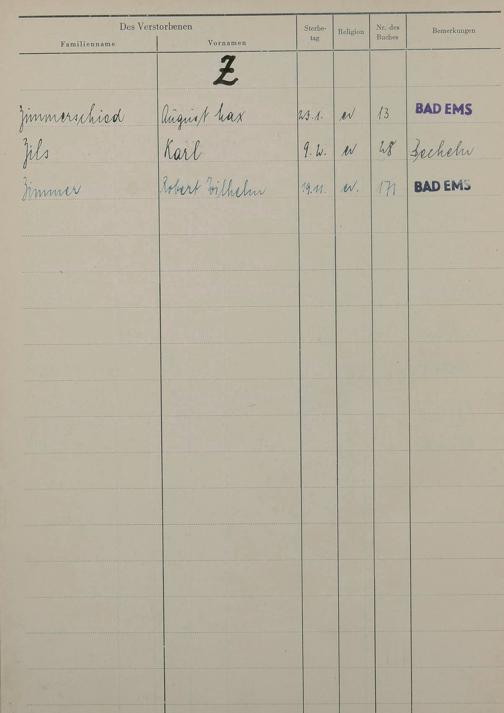 Des Verstorbenen
Familienname Vornamen Sterbe-
tag Religion Nr. des
Buches Bemerkungen
Z
Zimmerschied August Max 23.1. ev 13 BAD EMS
Zils Karl 9.2. ev 28 Becheln
Zimmer Robert Wilhelm 19.11. ev. 171 BAD EMS